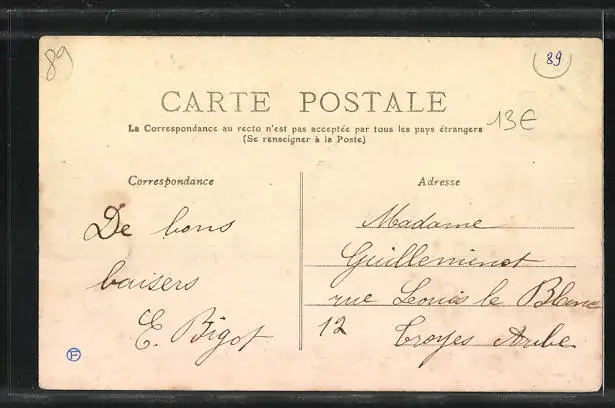 89
89
CARTE POSTALE
13€
La Correspondance au recto n'est pas acceptée par tous les pays étrangers
(Se renseigner à la Poste)
Correspondance
De bons
baisers
E. Bigot
Adresse
Madame
Guilleminot
rue Louis le Blanc
12 Troyes Aube
F